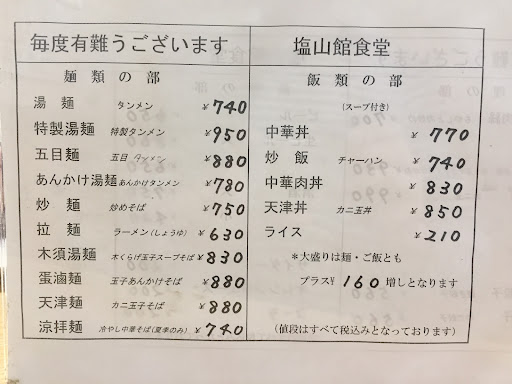 毎度有難うございます
麺類の部
湯麺 タンメン ¥740
特製湯麺 特製タンメン ¥950
五目麺 五目タンメン ¥880
あんかけ湯麺 あんかけタンメン ¥780
炒麺 炒めそば ¥750
拉麺 ラーメン(しょうゆ) ¥630
木須湯麺 木くらげ玉子スープそば ¥830
蛋滷麺 玉子あんかけそば ¥880
天津麺 カニ玉子そば ¥880
涼拌麺 冷やし中華そば(夏季のみ) ¥740
塩山館食堂
飯類の部
(スープ付き)
中華丼 ¥770
炒飯 チャーハン ¥740
中華肉丼 ¥830
天津丼 カニ玉丼 ¥850
ライス ¥210
*大盛りは麺・ご飯とも
プラス¥160増しとなります
(値段はすべて税込みとなっております)